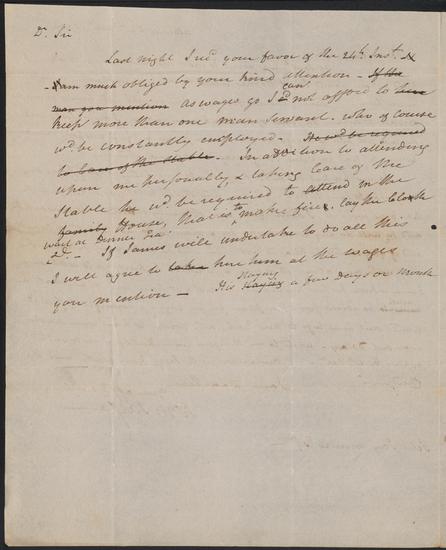 Dr. Sir
Last night I recd. your favor of the 24th Inst. &
am much obliged by your kind attention - If the
man you mention as wages go I can not afford to hire
keep more than one man servant. who of course
wd. be constantly employed. He wd. be required
to take care of the stable. In addition to attending
upon me personally, & taking Care of the
Stable he wd. be required to attend in the
family House, that is to make fires, lay the Cloth
wait at Dinner &ca
&c. - If James will undertake to do all this
I will agree to hire him at the wages
you mention - His staying a few days or month